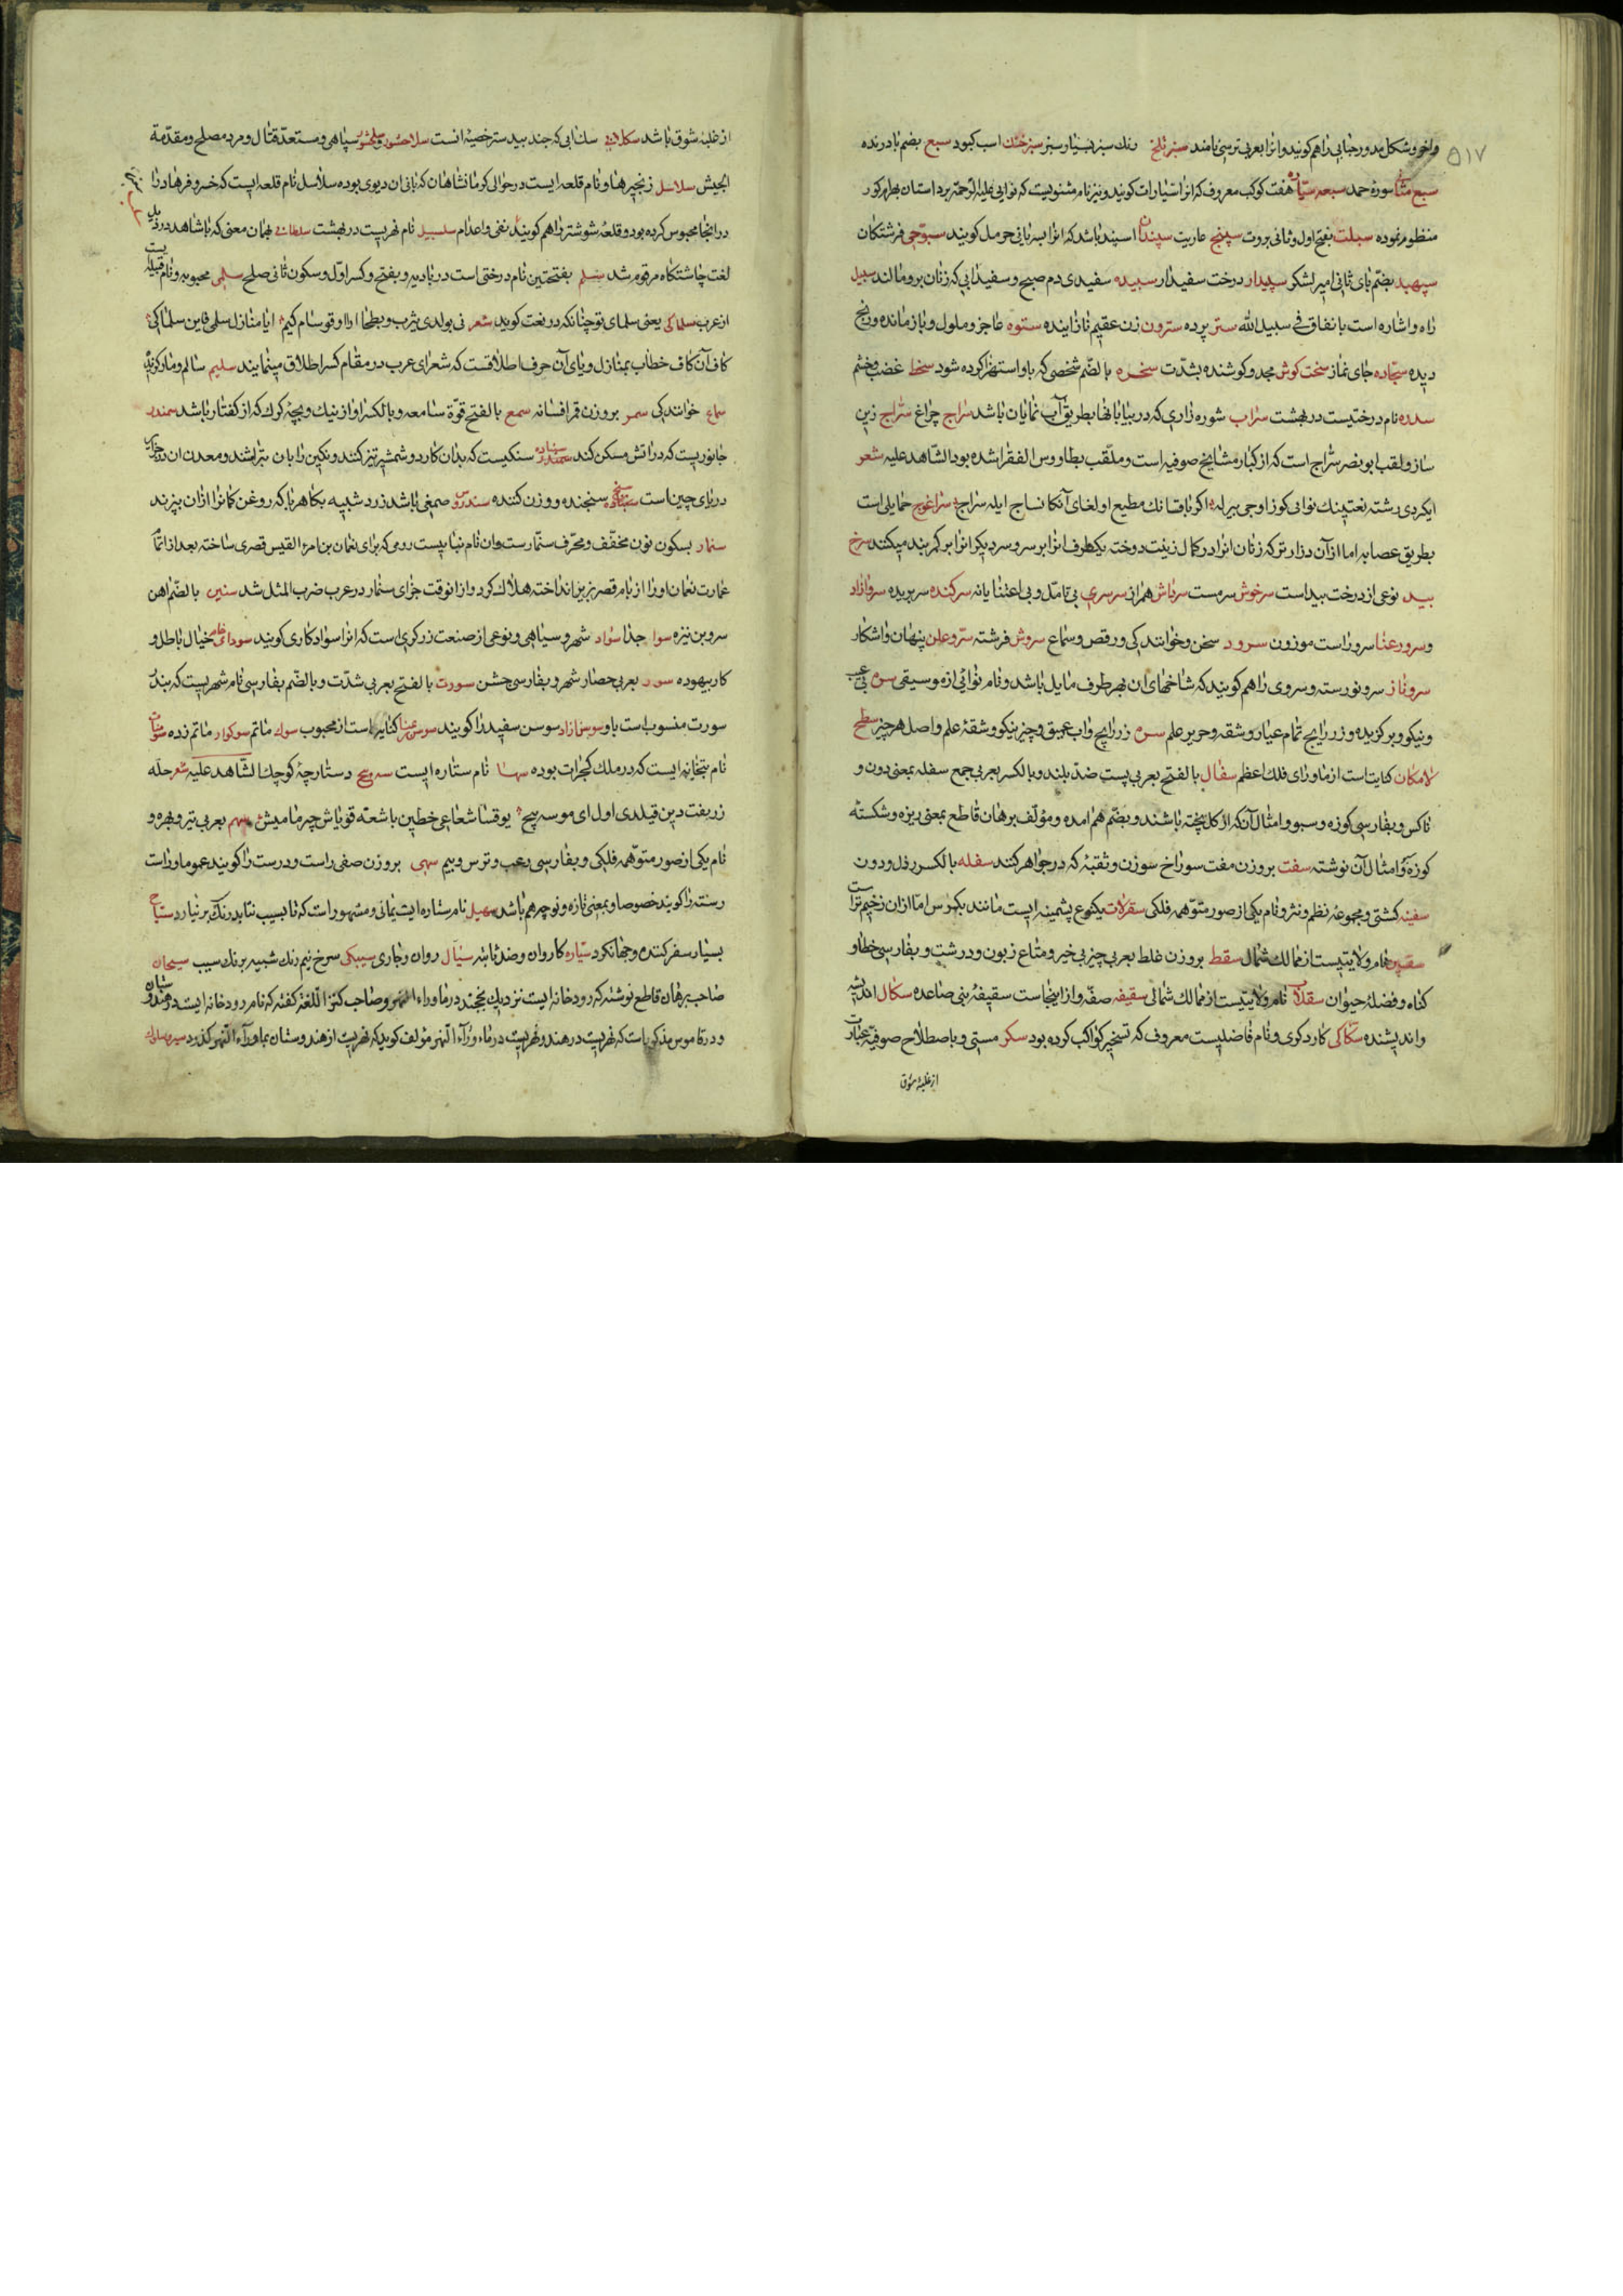 ۵۱۷
واخور و شکل مدور حبابی را هم کویند و انرا بعربی ترسی نامند سبز تلخ رنک سبز بسیار سبز سبز خنک اسب کبود سبع بضم با درنده
سبع مثانی سوره حمد سبعه سیاره هفت کوکب معروف که انرا سیارات کویند و نیز نام مثنویست که نوایی علیه الرحمه بر داستان بهرام کور
منظوم نموده سبلت بفتح اول و ثانی بروت سپنج عاریت سپندان اسپند باشد که انرا بسریانی حرمل کویند سبوحی فرشتکان
سپهبد بضم بای ثانی امیر لشکر سپیدار درخت سفیدار سپیده سفیدی دم صبح و سفیدابی که زنان برو مالند سبیل
راه و اشاره است بانفاق فی سبیل الله ستر پرده سترون زن عقیم نازاینده ستوه عاجز و ملول و باز مانده و رنج
دیده سجاده جای نماز سخت کوش مجد و کوشنده بشدت سخره بالضم شخصی که باو استهزا کرده شود سخط غضب و خشم
سدره نام درختیست در بهشت سراب شوره زاری که در بیابانها بطریق آب نمایان باشد سراج چراغ سراج زین
ساز و لقب ابو نصر سراج است که از کبار مشایخ صوفیه است و ملقب بطاووس الفقرا شده بود الشاهد علیه شعر
ایکردی رشته نعتینک نوایی کوز اوجی بیرله اکر باقسانک مطیع اولغای آنکا نساج ایله سراج سراغوج حمایلی است
بطریق عصابه اما از آن درازتر که زنان انرا در کمال زینت دوخته یکطرف انرا بر سر و سر دیکر انرا بر کمر بند میکنند سرخ
بید نوعی از درخت بید است سرخوش سرمست سرتاش همراز سرسری بی تامل و بی اعتنایانه سرکنده سر بریده سرو آزاد
و سرو رعنا سرو راست موزون سرود سخن و خوانندکی و رقص و سماع سروش فرشته سر و علن پنهان و اشکار
سرو ناز سرو نو رسته و سروی را هم کویند که شاخهای ان بهر طرف مایل باشد و نام نوائی از موسیقی سره بی عیب
و نیکو و برکزیده و زر رایج تمام عیار و شقه و حریر علم سره زر رایج و اب عمیق و چیز نیکو و شقه علم و اصل هر چیز سطح
لامکان کنایت است از ماورای فلک اعظم سفال بالفتح بعربی پست ضد بلند و بالکسر بعربی جمع سفله بمعنی دون و
ناکس و بفارسی کوزه و سبو و امثال آنکه از کل پخته باشند و بضم هم امده و مؤلف برهان قاطع بمعنی ریزه و شکسته
کوزه و امثال آن نوشته سفت بر وزن مفت سوراخ سوزن و ثقبه که در جواهر کنند سفله بالکسر رذل و دون
سفینه کشتی و مجموعه نظم و نثر و نام یکی از صور متوهمه فلکی سقرلات یکنوع پشمینه ایست مانند بکرس اما از ان ضخیم تر است
سقسین نام ولایتیست از ممالک شمال سقط بر وزن غلط بعربی چیز بی خیر و متاع زبون و درشت و بفارسی خطا و
کناه و فضله حیوان سقلاب نام ولایتیست از ممالک شمالی سقیفه صفه و از اینجاست سقیفه بنی صاعده سکال اندیشه
و اندیشنده سکاکی کارد کری و نام فاضلیست معروف که تسخیر کواکب کرده بود سکر مستی و باصطلاح صوفیه عبارت
از غلبه شوق
از غلبه شوق باشد سکلابی سک ابی که جند بیدستر خصیه انست سلاحشور و سلحشور سپاهی و مستعد قتال و مرد مصلح و مقدمة
الجیش سلاسل زنجیرها و نام قلعه ایست در حوالی کرمانشاهان که بانی ان دیوی بوده سلاسل نام قلعه ایست که خسرو فرهاد را
در انجا محبوس کرده بود و قلعه شوشتر را هم کویند نفی و اعدام سلسبیل نام نهریست در بهشت سلطانی بهمان معنی که با شاهد در ذیل
لغت چاشتکاه مرقوم شد سلم بفتحتین نام درختی است در بادیه و بفتح و کسر اول و سکون ثانی صلح سلمی محبوبه و نام قبیله یست
از عرب سلماکی یعنی سلمای تو چنانکه در نعت کوید شعر نی بولدی یثرب و بطحا ارا اوقوسام کیم ایا منازل سلمی فاین سلماکی
کاف آن کاف خطاب بمنازل و یای آن حرف اطلاقست که شعرای عرب در مقام کسر اطلاق مینمایند سلیم سالم و مار کزیده
سماع خوانندکی سمر بر وزن قمر افسانه سمع بالفتح قوة سامعه و بالکسر اواز نیک و بچه کرک که از کفتار باشد سمندر
جانوریست که در اتش مسکن کند سنباده سنکیست که بدان کارد و شمشیر تیز کنند و نکین را بان بتراشند و معدن ان در جزایر
دریای چین است سنجنده و وزن کننده سندروس صمغی باشد زرد شبیه بکاهربا که روغن کمانرا از ان پزند
سنمار بسکون نون مخفف و محرف سنمار ست و ان نام بنایست رومی که برای نعمان بن امرا القیس قصری ساخته بعد از اتمام
عمارت نعمان اورا از بام قصر بزیر انداخته هلاک کرد و از انوقت جزای سنمار در عرب ضرب المثل شد سنین بالضم اهن
سر و بن نیزه سوا جدا سواد شهر و سیاهی و نوعی از صنعت زرکری است که انرا سواد کاری کویند سودای خام خیال باطل و
کار بیهوده سور بعربی حصار شهر و بفارسی جشن سورت بالفتح بعربی شدت و بالضم بفارسی نام شهریست که بندر
سورت منسوب است باو سوسن ازاد سوسن سفید را کویند سوسن رعنا کنایه است از محبوب سوک ماتم سوکوار ماتم زده سومنات
نام بتخانه ایست که در ملک کجرات بوده سها نام ستاره ایست سه پیچ دستارچه کوچک الشاهد علیه شعر حله
زربفت دین قیلدی اول ای مو سه پیچ یوقسا شعاعی خطین باشعه قویاش چرمامیش سهم بعربی تیر و بهره و
نام یکی از صور متوهمه فلکی و بفارسی رعب و ترس و بیم سهی بر وزن صفی راست و درست را کویند عموما و راست
رسته را کویند خصوصا و بمعنی تازه و نوچه هم باشد سهیل نام ستاره ایست یمانی و مشهور است که تا بسیب نتابد رنک بر نیارد سیاح
بسیار سفر کننده و جهانکرد سیاره کاروان و ضد ثابته سیال روان و جاری سیبکی سرخ نیم رنک شبیه برنک سیب سیحان
صاحب برهان قاطع نوشته که رودخانه ایست نزدیک بخجند در ماوراء النهر و صاحب کنز اللغة کفته که نام رودخانه ایست در هندوستان
و در قاموس مذکور است که نهریست در هند و نهریست در ماوراء النهر مؤلف کوید که نهریست از هندوستان بماوراء النهر کذرد